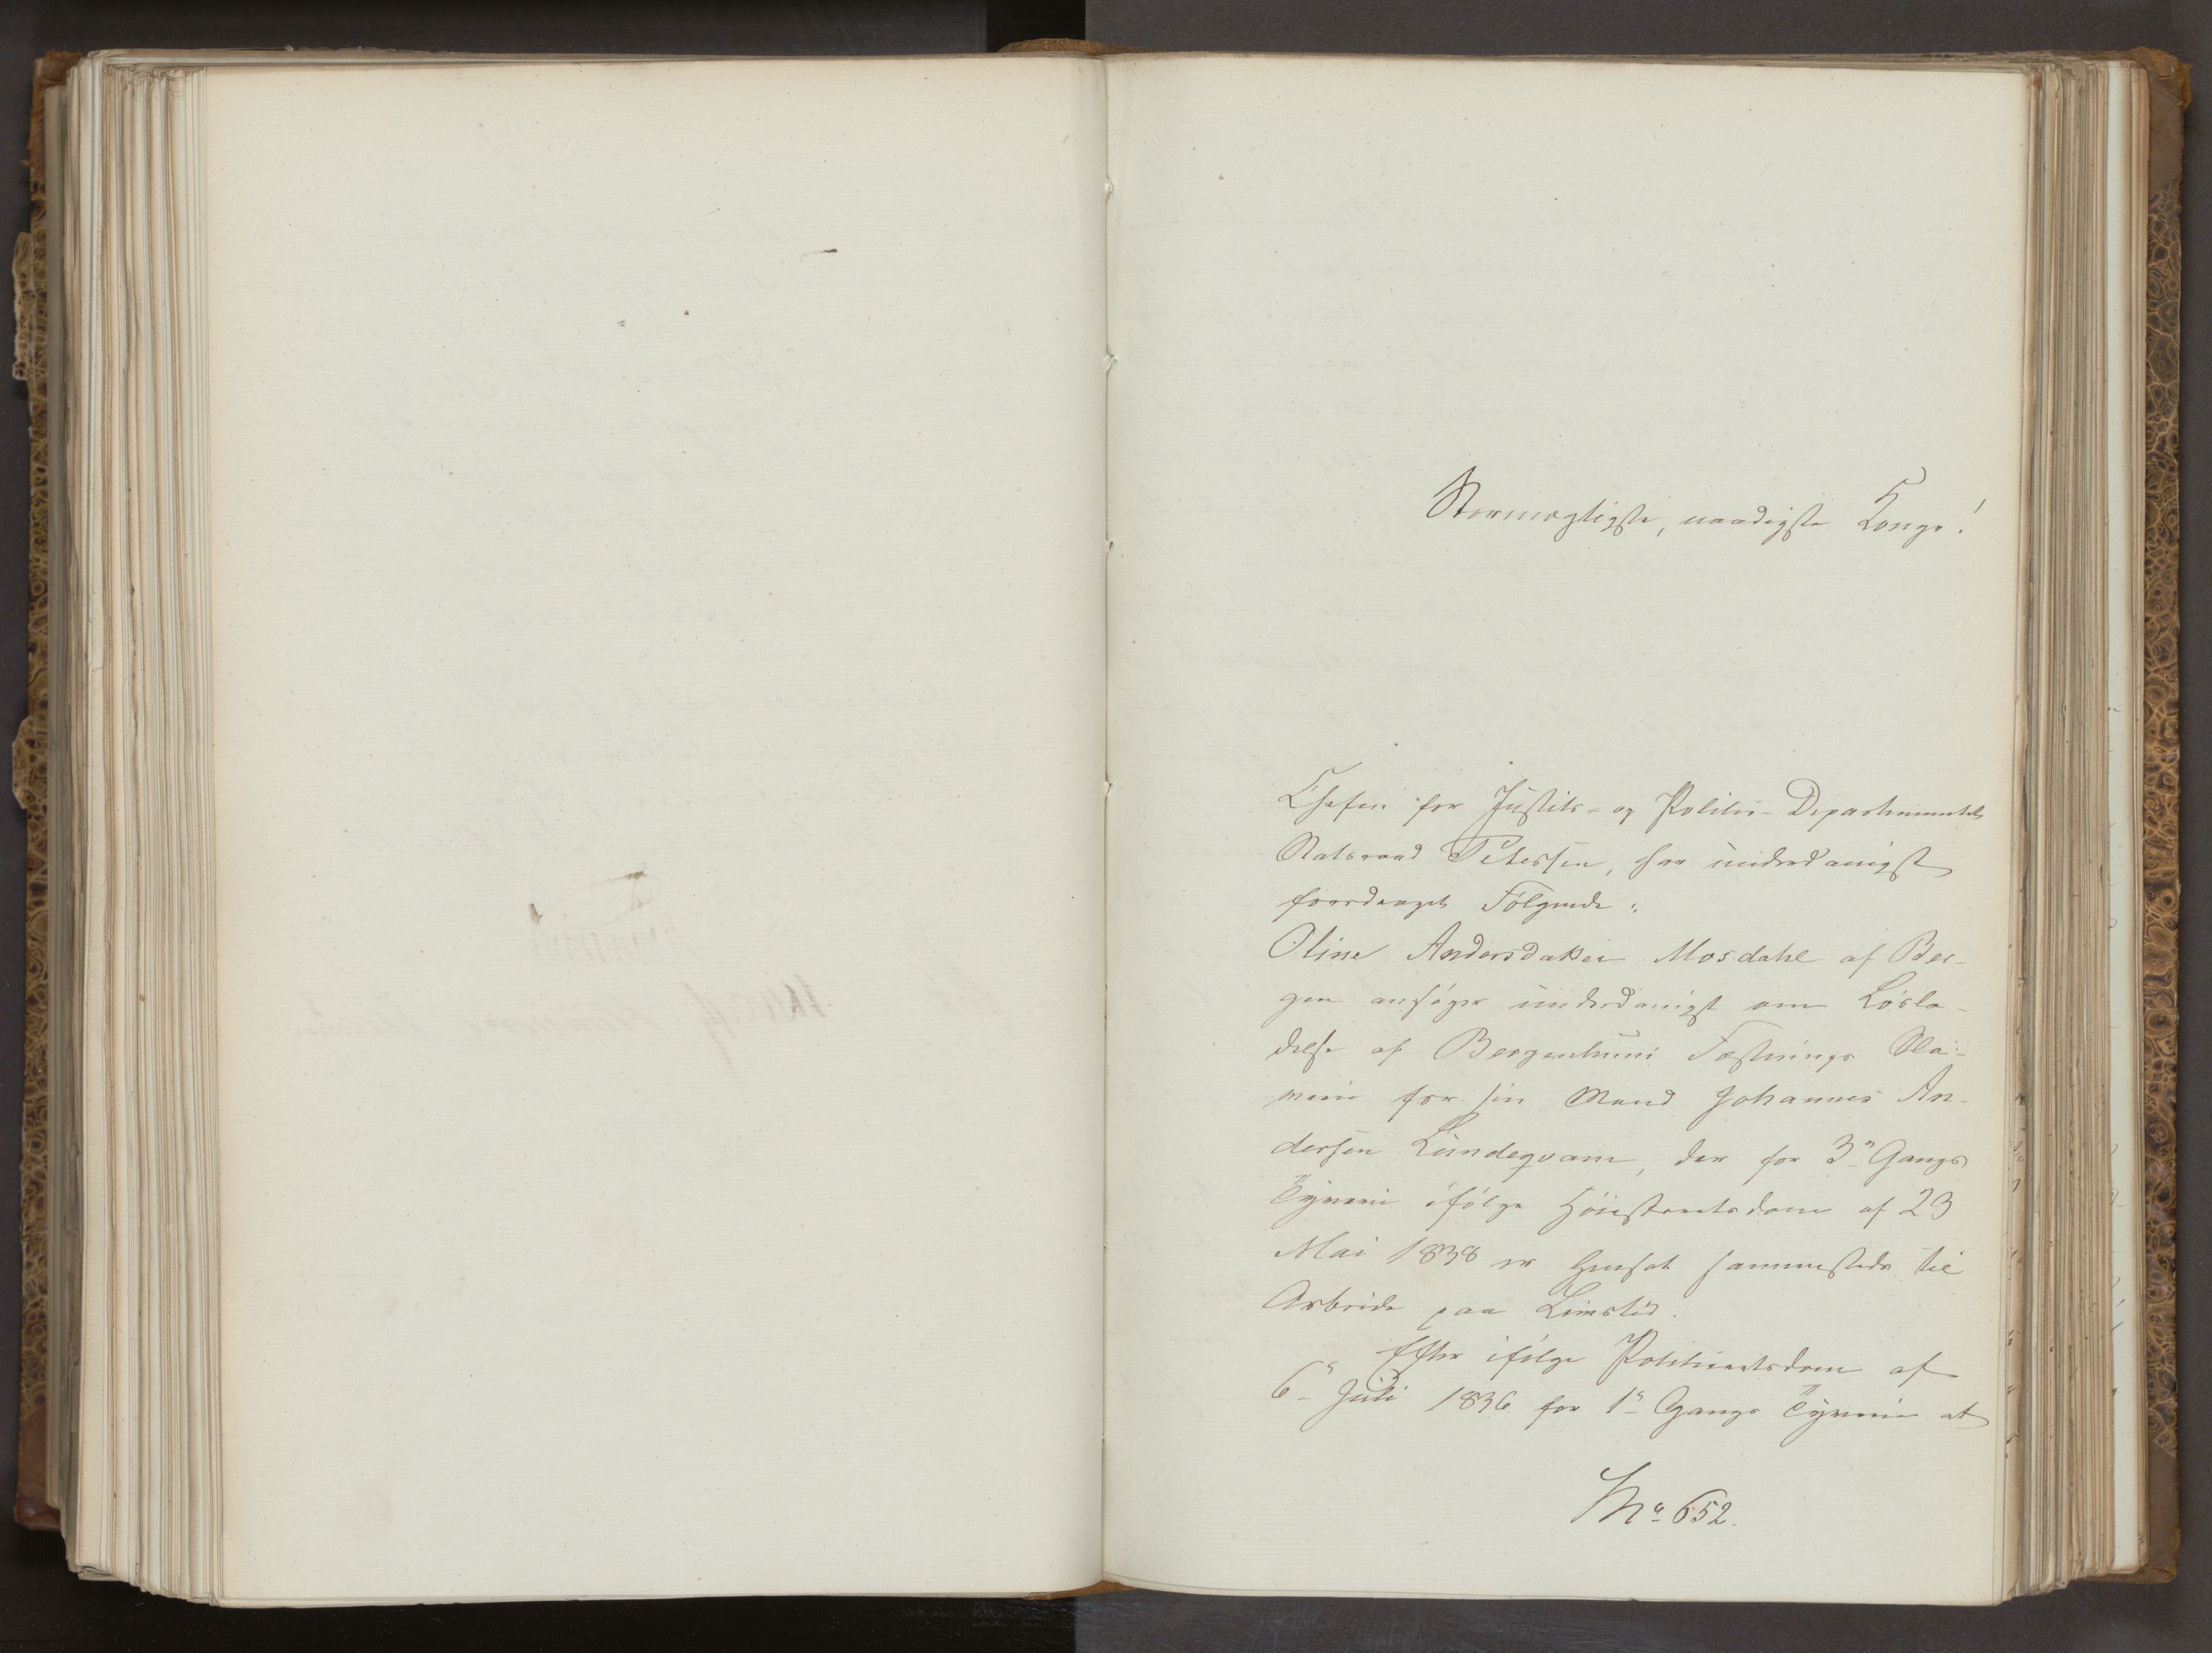 Stormægtigste, naadigste Konge!
Chefen for Justits- og Politie-Departementet
Statsraad Petersen, har underdanigst
foredraget Følgende:
Oline Andersdatter Mosdahl af Ber-
gen ansøger underdanigst om Løsla-
delse af Bergenhuus Fæstnings Sla-
verie for sin Mand Johannes An-
dersen Lundeqvam, der for 3die Gangs
Tyverie ifølge Høiesteretsdom af 23
Mai 1838 er hensat sammesteds til
Arbeide paa Livstid.
Efter ifølge Politieretsdom af
6te Juli 1836 for 1ste Gangs Tyverie at
No 652.